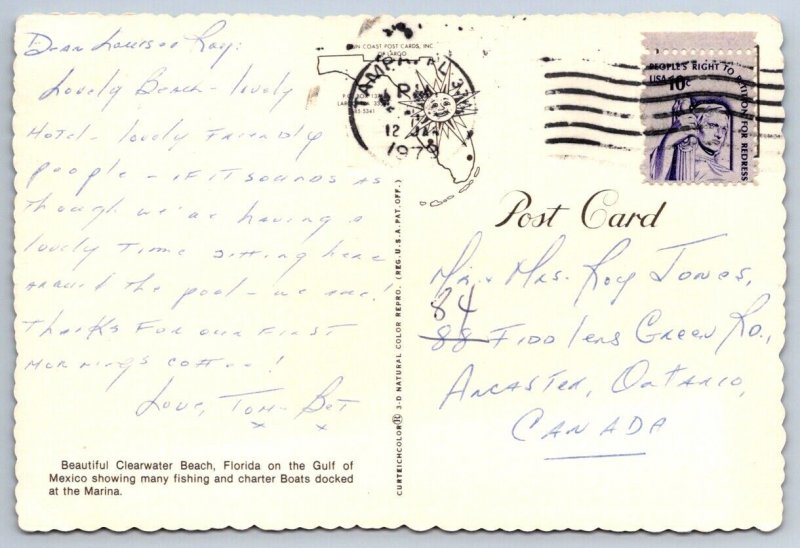 Dear Louise & Roy:
Lovely Beach - lovely
Hotel - lovely friendly
people - if it sounds as
though we're having a
lovely time sitting here
around the pool - we are!
Thanks for our first
mornings coffee!
Love, Tom - Bet
x x
COAST POST CARDS, INC
OF LARGO
TAMPA, FL 33
12
1979
PEOPLE'S RIGHT TO PETITION FOR REDRESS
USA 10c
Post Card
Mr. Mrs. Roy Jones,
84
88 Fiddlers Green Rd.,
Ancaster, Ontario,
CANADA
CURTEICHCOLOR® 3-D NATURAL COLOR REPRO. (REG. U.S.A. PAT. OFF.)
Beautiful Clearwater Beach, Florida on the Gulf of
Mexico showing many fishing and charter Boats docked
at the Marina.